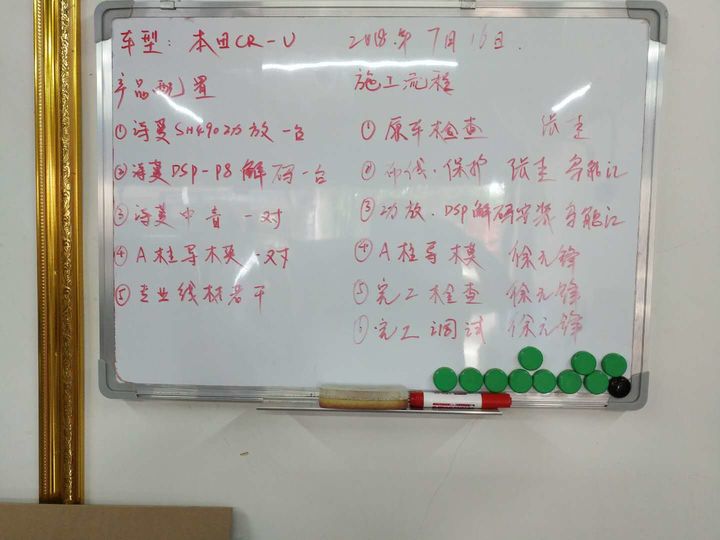 车型: 本田CR-V 2018.年7月16日.
产品配置
①诗蔓SH490功放一台
②诗蔓DSP-P8解码一台
③诗蔓中音 一对
④A柱导木模一对
⑤专业线材若干
施工流程
①原车检查 张圭
②布线·保护 张圭
③功放.DSP解码安装
④A柱导模 徐元锋
⑤完工检查 徐元锋
⑥完工调试 徐元锋